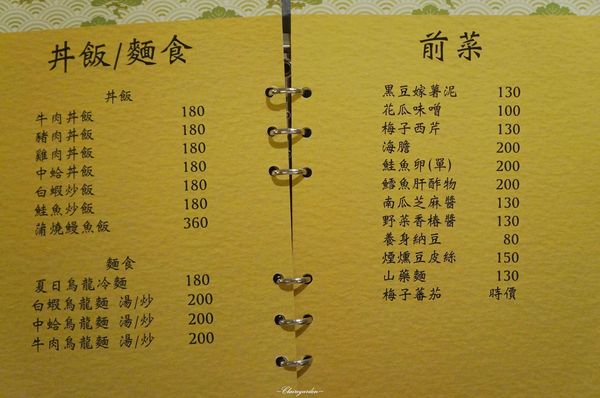 丼飯/麵食
丼飯
牛肉丼飯 180
豬肉丼飯 180
雞肉丼飯 180
中蛤丼飯 180
白蝦炒飯 180
鮭魚炒飯 180
蒲燒鰻魚飯 360
麵食
夏日烏龍冷麵 180
白蝦烏龍麵 湯/炒 200
中蛤烏龍麵 湯/炒 200
牛肉烏龍麵 湯/炒 200
前菜
黑豆嫁薯泥 130
花瓜味噌 100
梅子西芹 130
海膽 200
鮭魚卵(單) 200
鱈魚肝酢物 200
南瓜芝麻醬 130
野菜香椿醬 130
養身納豆 80
煙燻豆皮絲 150
山藥麵 130
梅子蕃茄 時價
~Clairegarden~